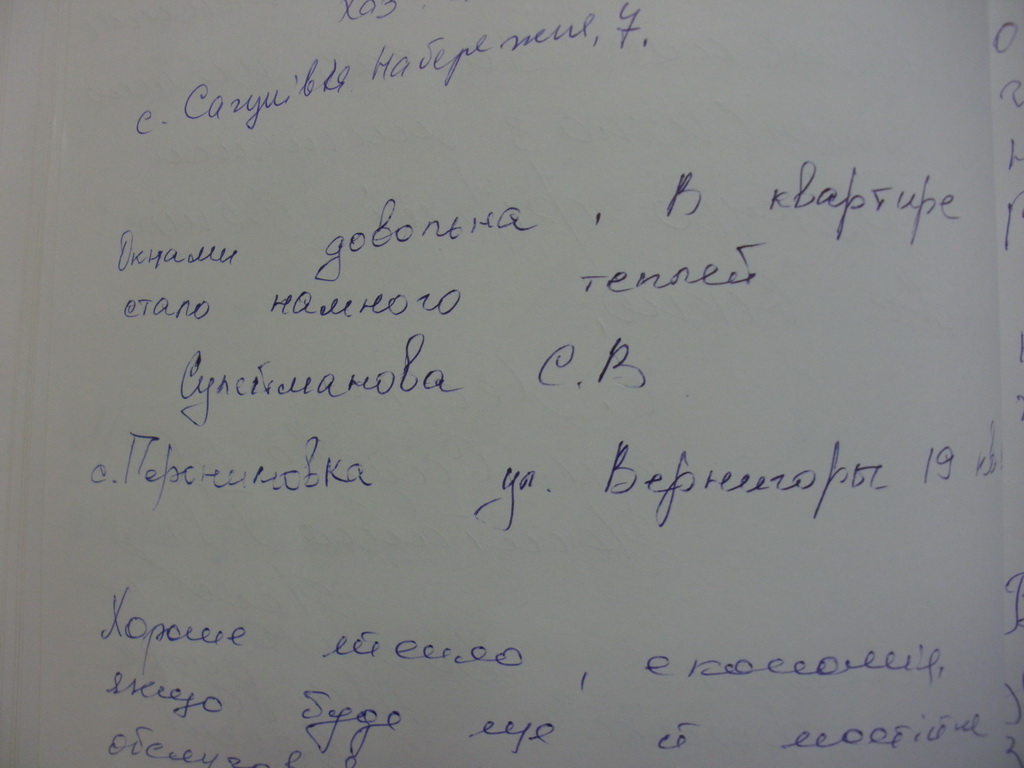 хоз
с. Сагунівка Набережня, 7.
Окнами довольна, В квартире
стало намного теплей
Сулейманова С.В
с. Геронимовка ул. Вернигоры 19 кв
Хороше тепло, економія,
якщо буде ще й постійне